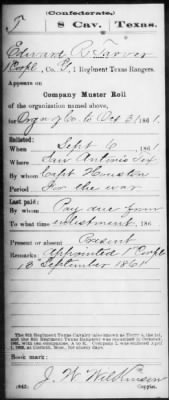 (Confederate.)
T 8 Cav. Texas.
Edward R. Tarver
1 Corpl, Co. G, 1 Regiment Texas Rangers.
Appears on
Company Muster Roll
of the organization named above,
for Org'n of Co. to Oct 31, 1861.
Enlisted:
When Sept 6, 1861
Where San Antonio Tex
By whom Capt Houston
Period For the war
Last paid:
By whom Pay due from
To what time enlistment, 186
Present or absent Present
Remarks: Appointed 1 Corpl
13 September 1861
Book mark:
J. W. Wilkinson
(642) Copyist.